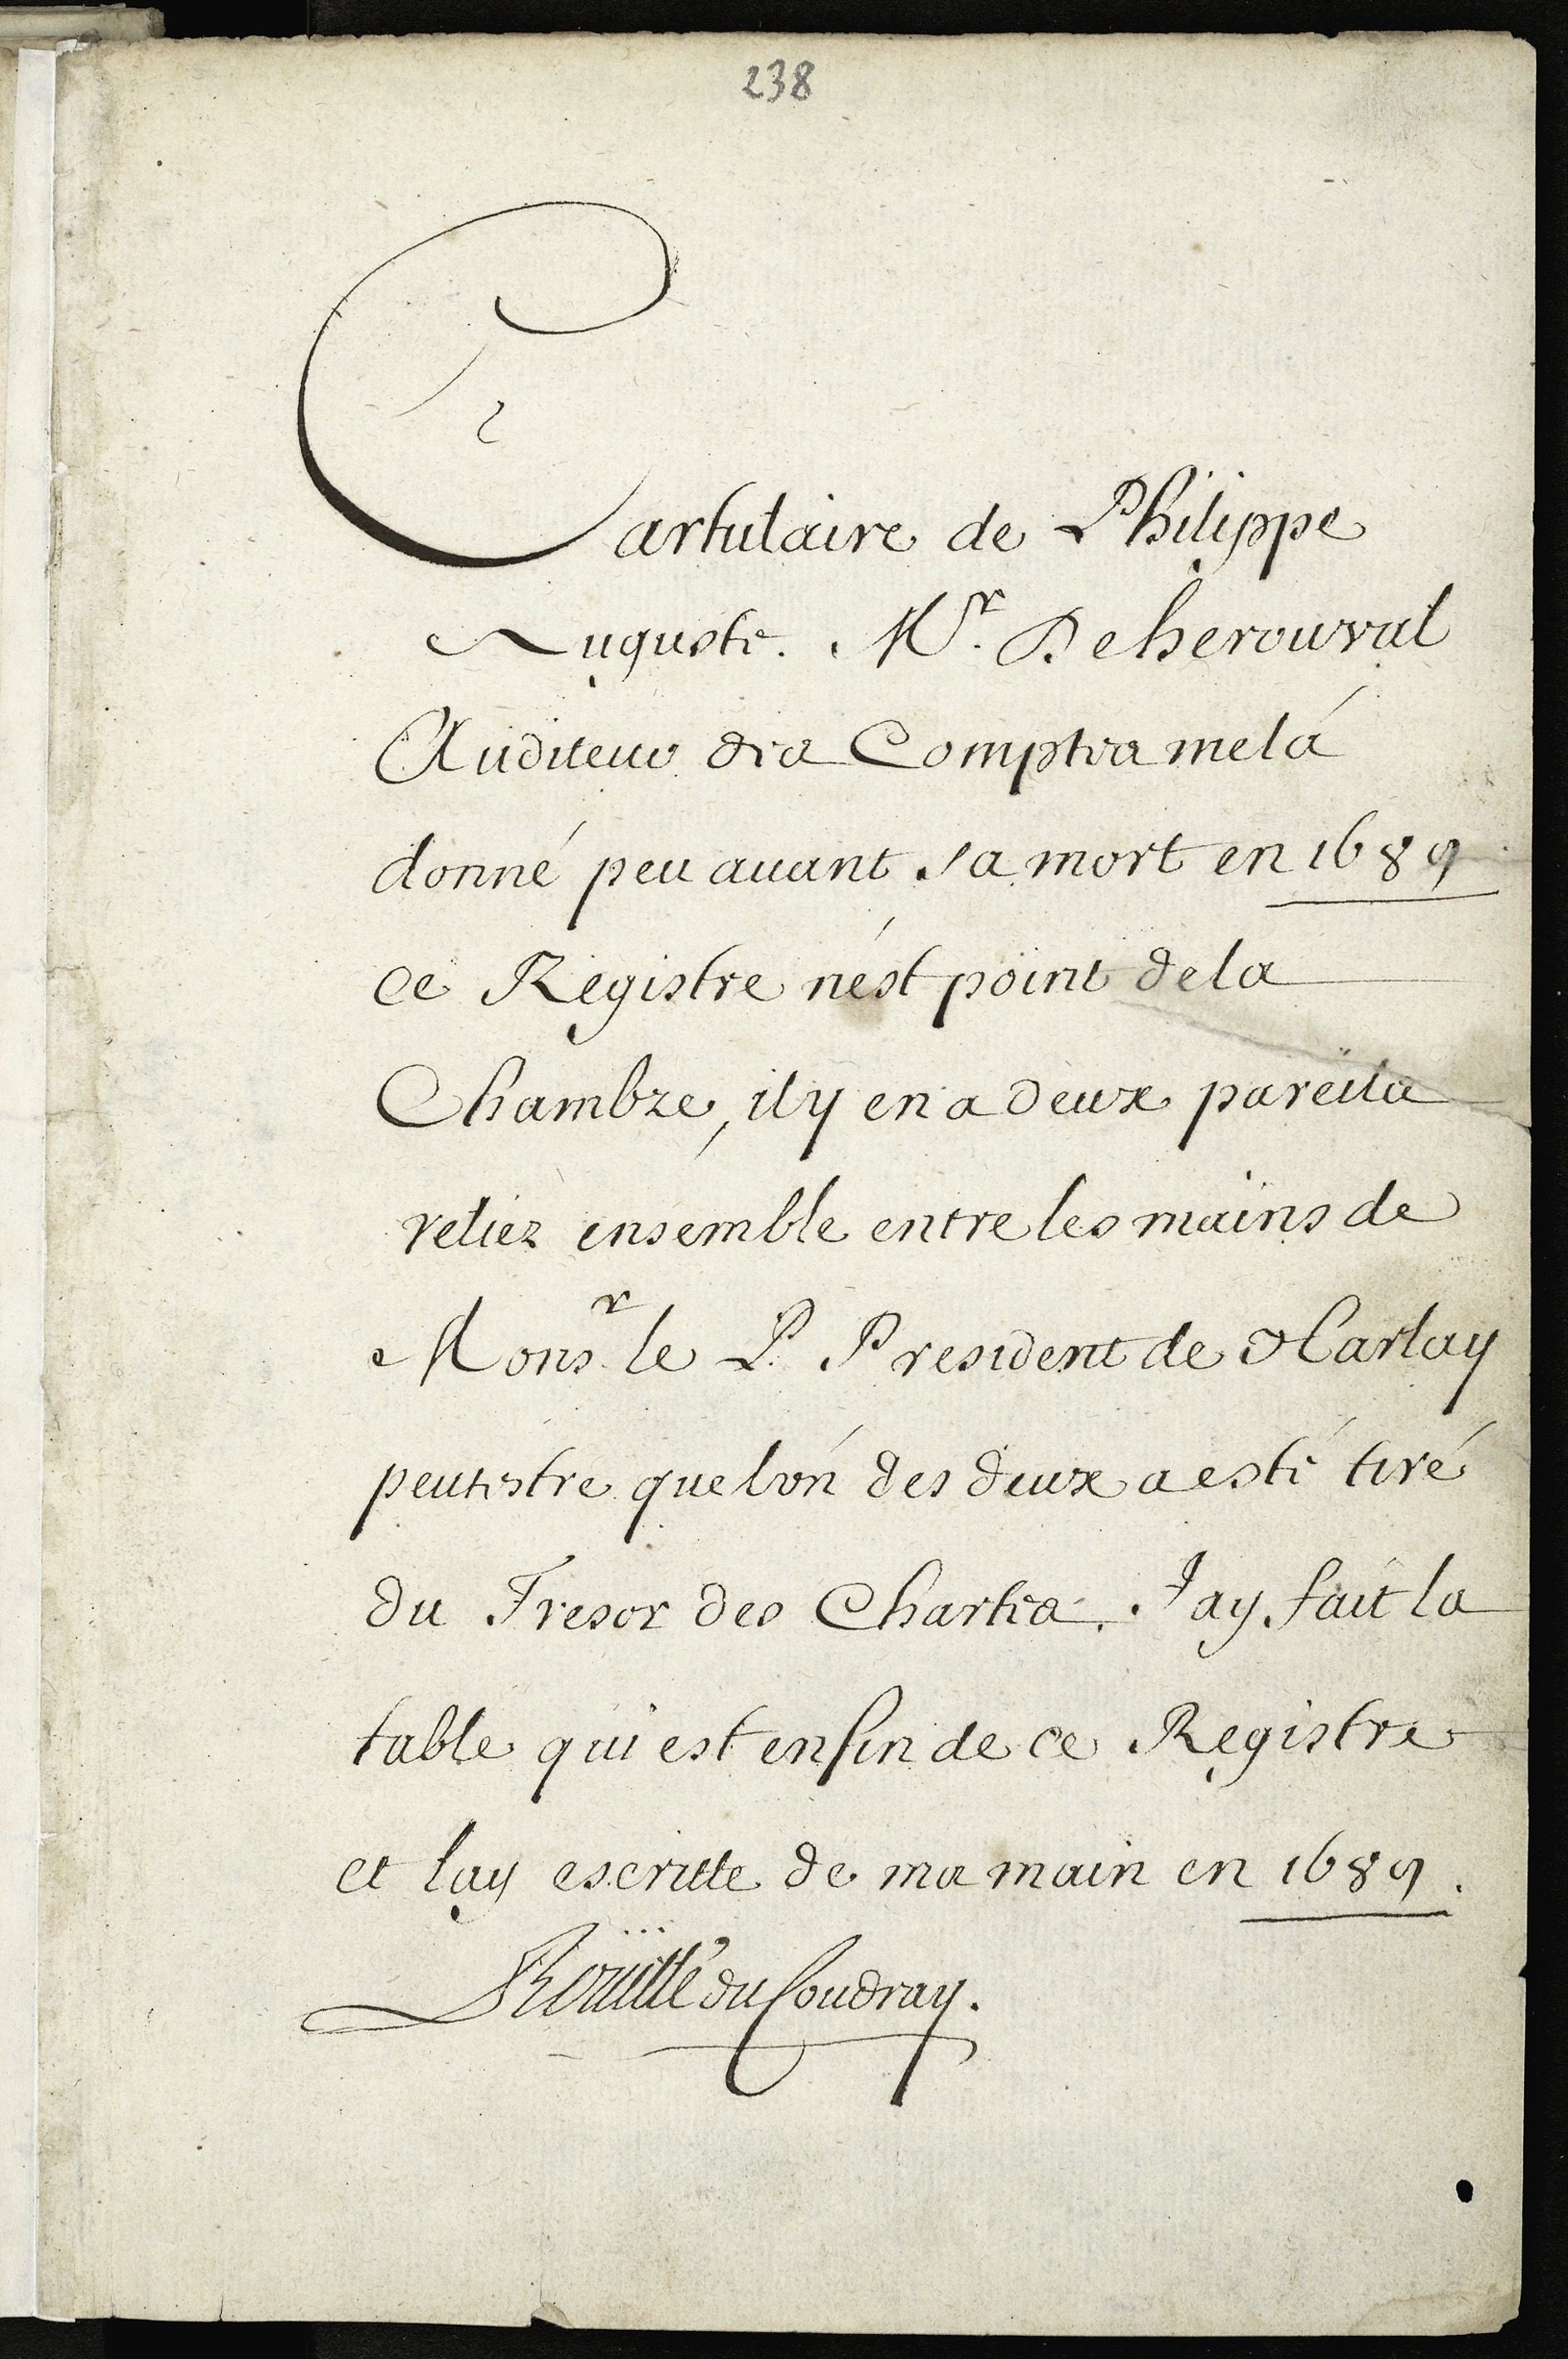 238
Cartulaire de Philippe
Auguste. Mr. De herouval
Auditeur des Comptes me lá
donné peu auant sa mort en 1689
ce Registre nést point de la
Chambre, il y en a deux pareils
reliez ensemble entre les mains de
Monsr. le P. President de Harlay
peutestre que lón des deux a esté tiré
du Tresor des Chartes. Jay fait la
table qui est en fin de ce Registre
et lay escritte de ma main en 1689.
Roüillé du Coudray.